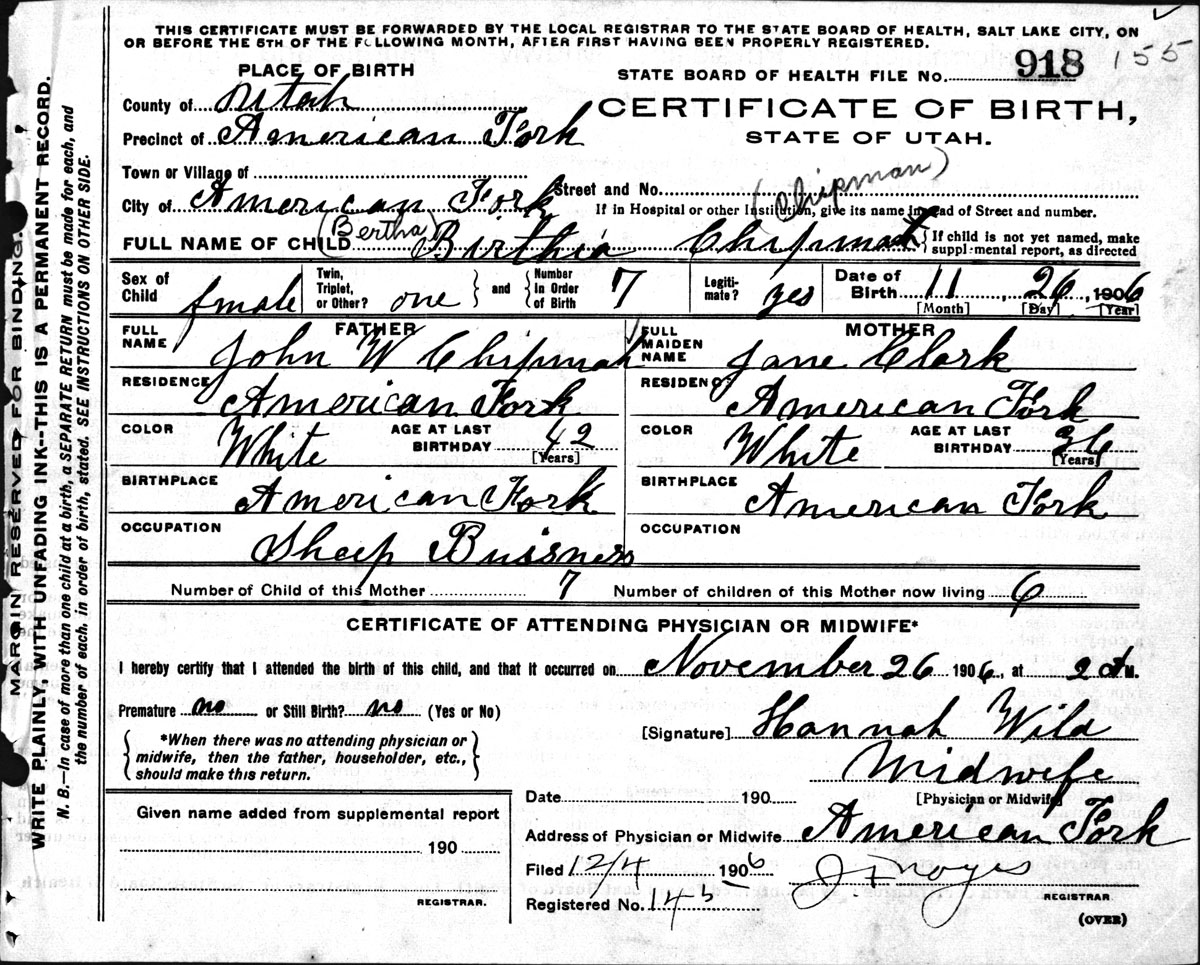 THIS CERTIFICATE MUST BE FORWARDED BY THE LOCAL REGISTRAR TO THE STATE BOARD OF HEALTH, SALT LAKE CITY, ON
OR BEFORE THE 5TH OF THE FOLLOWING MONTH, AFTER FIRST HAVING BEEN PROPERLY REGISTERED.
155
PLACE OF BIRTH
STATE BOARD OF HEALTH FILE No. 918
County of Utah
CERTIFICATE OF BIRTH,
Precinct of American Fork
STATE OF UTAH.
Town or Village of
(Chipman)
City of American Fork Street and No.
If in Hospital or other Institution, give its name instead of Street and number.
(Bertha)
FULL NAME OF CHILD Birthia Chipman { If child is not yet named, make
supplemental report, as directed
Sex of Child female
Twin, Triplet, or Other? one } and { Number in Order of Birth 7
Legitimate? yes
Date of Birth 11, 26, 1906
[Month] [Day] [Year]
FATHER
FULL NAME John W Chipman
RESIDENCE American Fork
COLOR White AGE AT LAST BIRTHDAY 42
[Years]
BIRTHPLACE American Fork
OCCUPATION Sheep Buisness
MOTHER
FULL MAIDEN NAME Jane Clark
RESIDENCE American Fork
COLOR White AGE AT LAST BIRTHDAY 36
[Years]
BIRTHPLACE American Fork
OCCUPATION
Number of Child of this Mother 7 Number of children of this Mother now living 6
CERTIFICATE OF ATTENDING PHYSICIAN OR MIDWIFE*
I hereby certify that I attended the birth of this child, and that it occurred on November 26 1906, at 2 AM.
Premature no or Still Birth? no (Yes or No)
{ *When there was no attending physician or
midwife, then the father, householder, etc.,
should make this return. }
[Signature] Hannah Wild
Midwife
[Physician or Midwife]
Given name added from supplemental report
190
REGISTRAR.
Date 190
Address of Physician or Midwife American Fork
Filed 12/4 1906 J. F. Noyes
REGISTRAR
Registered No. 145
(OVER)
MARGIN RESERVED FOR BINDING.
WRITE PLAINLY, WITH UNFADING INK--THIS IS A PERMANENT RECORD.
N. B.—In case of more than one child at a birth, a SEPARATE RETURN must be made for each, and
the number of each, in order of birth, stated. SEE INSTRUCTIONS ON OTHER SIDE.